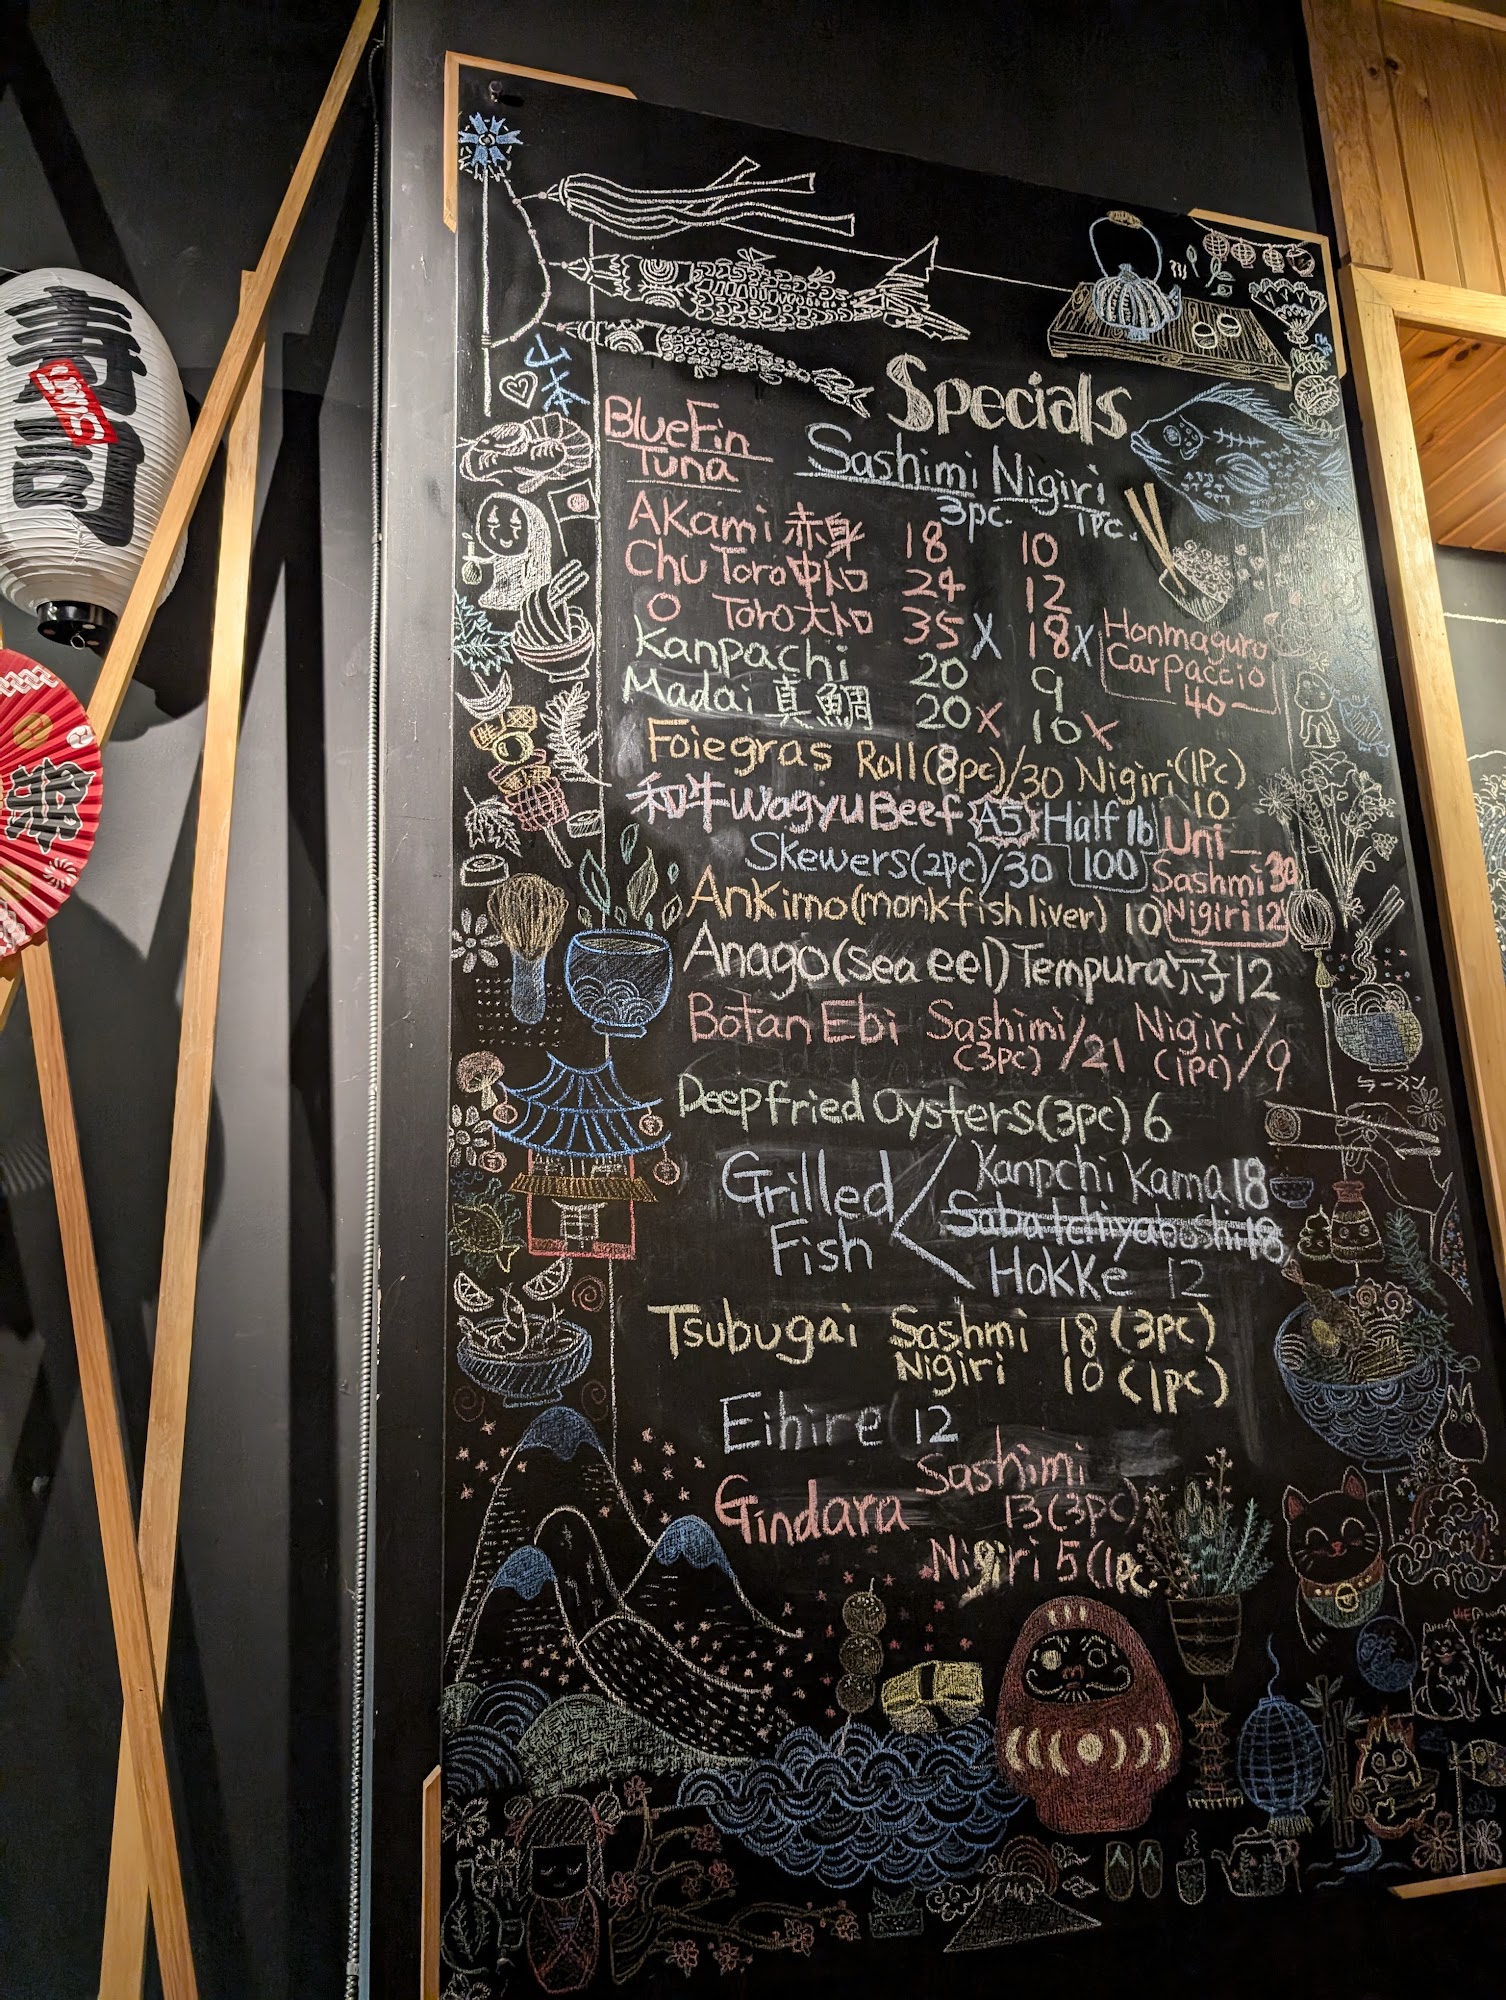 寿司
SUSHI
祭
山本
Specials
BlueFin
Tuna
Sashimi Nigiri
3pc. 1pc.
AKami 赤身 18 10
Chu Toro 中トロ 24 12
O Toro 大トロ 35 X 18 X
Honmaguro
Carpaccio
40
Kanpachi 20 9
Madai 真鯛 20 X 10 X
Foiegras Roll (8pc)/30 Nigiri (1Pc)
10
和牛 Wagyu Beef A5 Half lb
100
Skewers (2pc)/30
Uni
Sashmi 30
Nigiri 12
Ankimo (monkfish liver) 10
Anago (sea eel) Tempura 穴子 12
Botan Ebi Sashimi /21 Nigiri /9
(3pc) (1pc)
Deep fried Oysters (3pc) 6
Grilled
Fish
Kanpchi Kama 18
Saba Ichiyaboshi 18
Hokke 12
Tsubugai Sashmi 18 (3pc)
Nigiri 10 (1pc)
Eihire 12
Gindara Sashimi
13 (3pc)
Nigiri 5 (1pc.
ラーメン